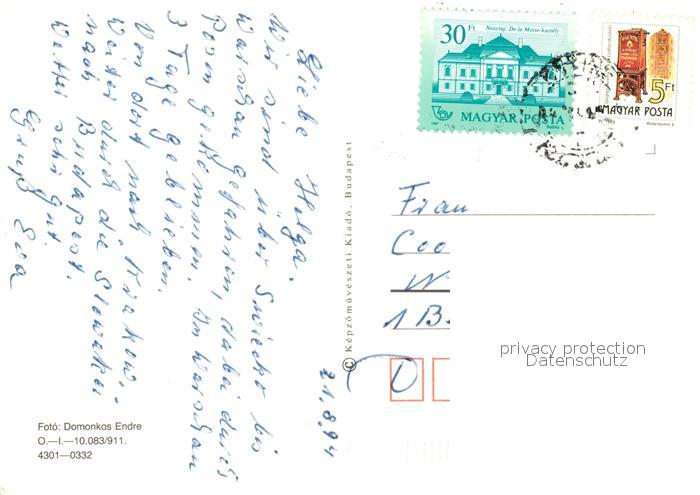 Liebe Helga.
Wir sind über Swiecko bis
Warschau gefahren, dabei durch
Posen gekommen. In Warschau
3 Tage geblieben.
Von dort nach Krakow,
weiter durch die Slowakei
nach Budapest.
Wetter sehr gut
Gruß Eva
21.8.94
Fotó: Domonkos Endre
O.—I.—10.083/911.
4301—0332
© Képzőművészeti Kiadó, Budapest
30 Ft
Noszvaj: De la Motte-kastély
MAGYAR POSTA
1987
5 Ft
MAGYAR POSTA
Frau
Coo
W
1 B
D
privacy protection
Datenschutz